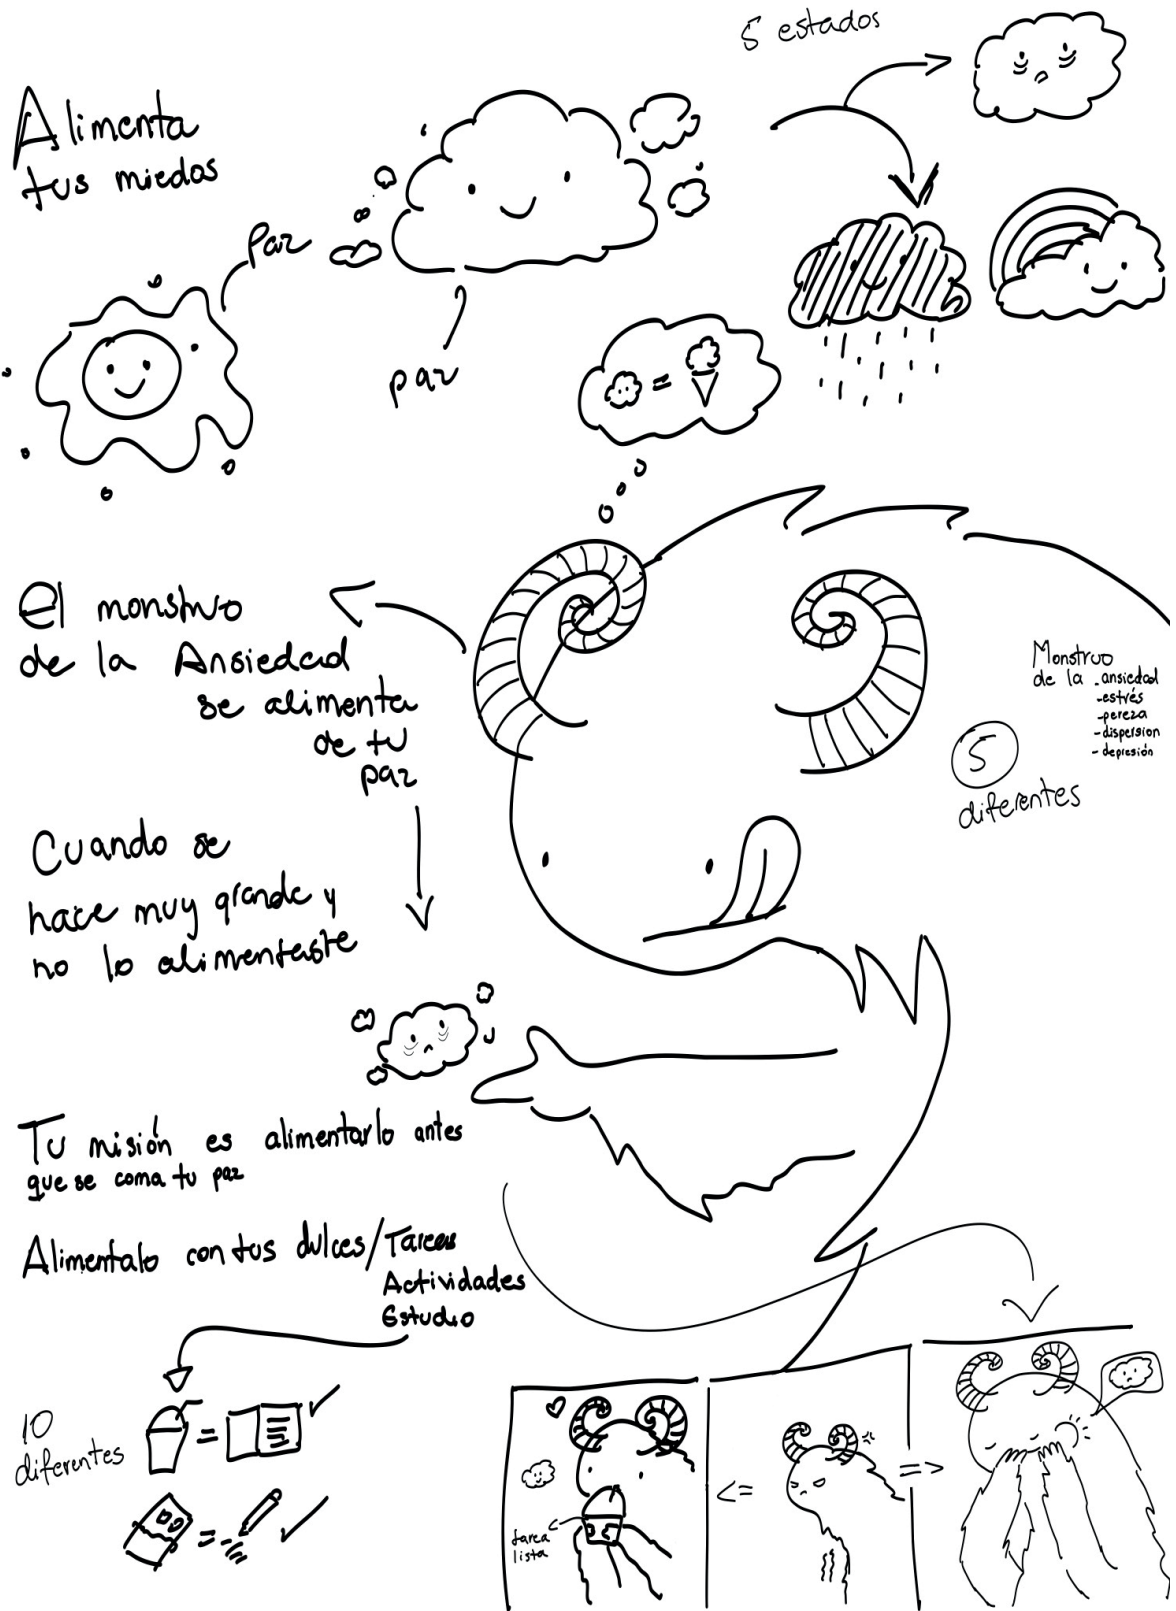 5 estados
Alimenta
tus miedos
Paz
paz
=
El monstruo
de la Ansiedad
se alimenta
de tu
paz
Monstruo
de la - ansiedad
- estrés
- pereza
- dispersion
- depresión
5
diferentes
Cuando se
hace muy grande y
no lo alimentaste
Tu misión es alimentarlo antes
que se coma tu paz
Alimentalo con tus dulces/Tareas
Actividades
Estudio
10
diferentes
=
=
<=
=>
tarea
lista